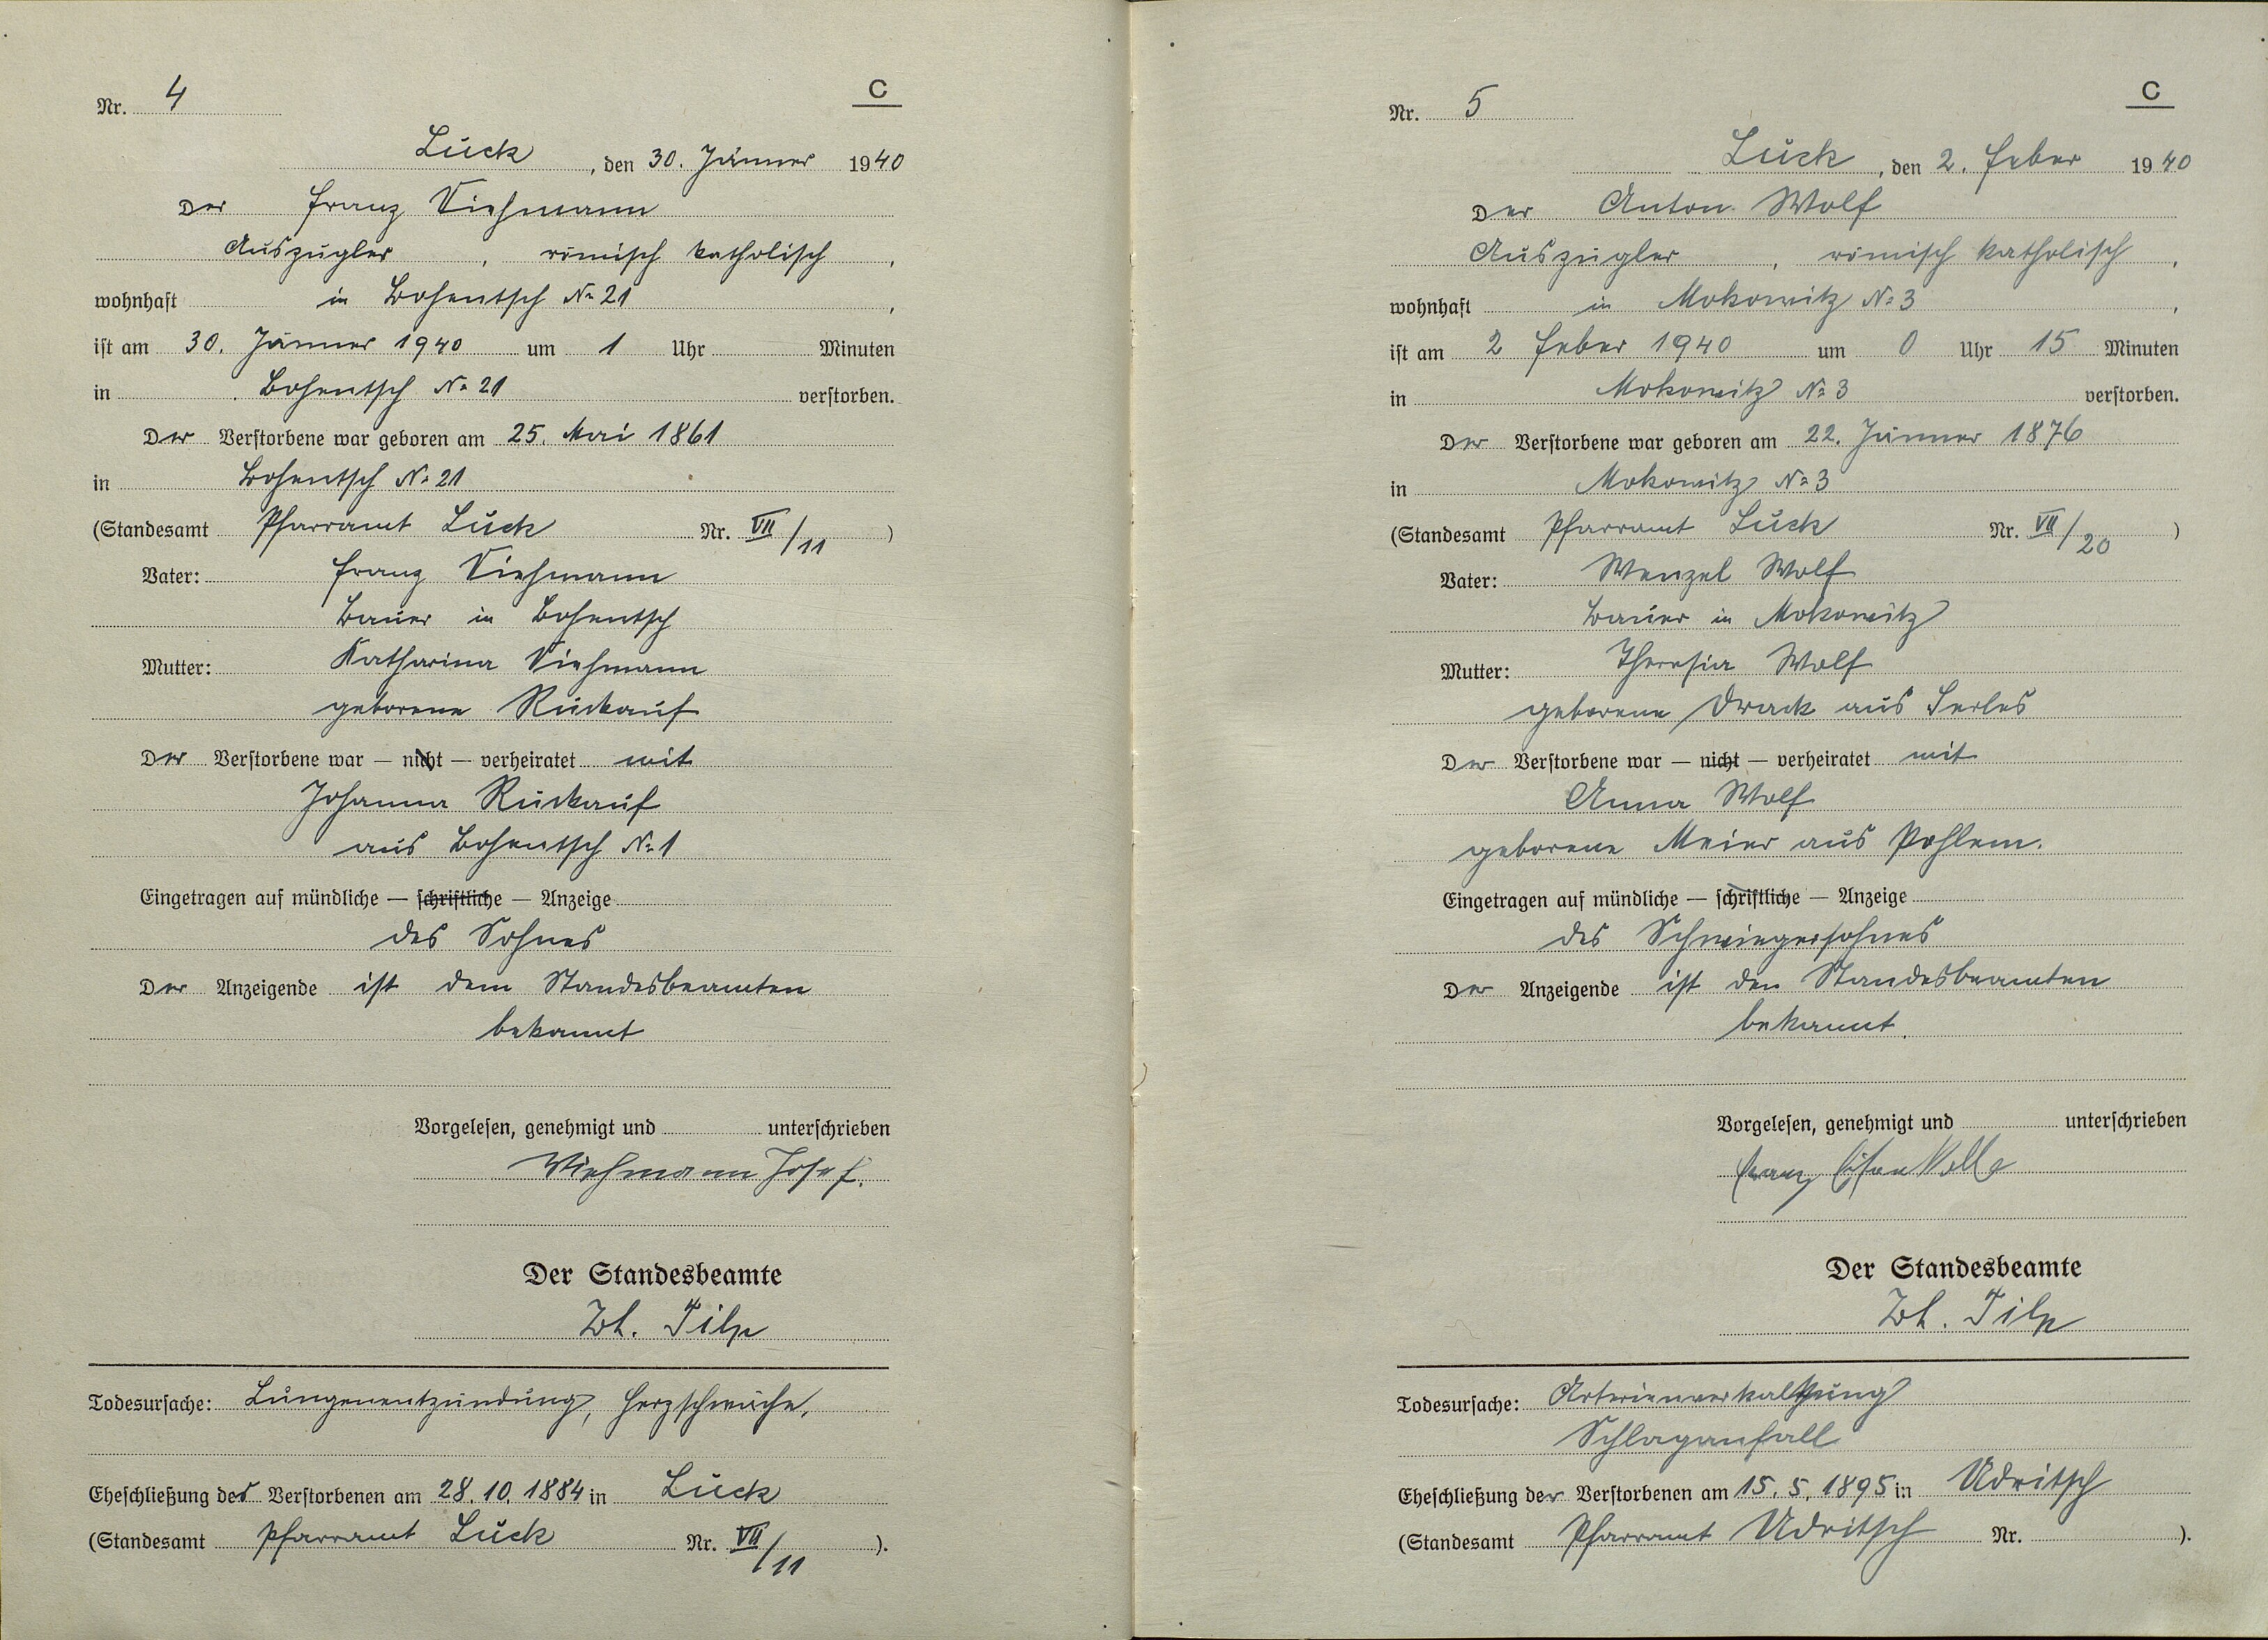 Nr. 4
C
Luck, den 30. Jänner 1940
Der Franz Viehmann
Auszügler, römisch katholisch,
wohnhaft in Bohentsch No 21,
ist am 30. Jänner 1940 um 1 Uhr Minuten
in Bohentsch No 21 verstorben.
Der Verstorbene war geboren am 25. Mai 1861
in Bohentsch No 21
(Standesamt Pfarramt Luck Nr. VII/11)
Vater: Franz Viehmann
Bauer in Bohentsch
Mutter: Katharina Viehmann
geborene Rückauf
Der Verstorbene war — nicht — verheiratet mit
Johanna Rückauf
aus Bohentsch No 1
Eingetragen auf mündliche — schriftliche — Anzeige
des Sohnes
Der Anzeigende ist dem Standesbeamten
bekannt
Vorgelesen, genehmigt und unterschrieben
Viehmann Josef.
Der Standesbeamte
Joh. Tilp
Todesursache: Lungenentzündung, Herzschwäche,
Eheschließung des Verstorbenen am 28.10.1884 in Luck
(Standesamt Pfarramt Luck Nr. VII/11).
Nr. 5
C
Luck, den 2. Feber 1940
Der Anton Wolf
Auszügler, römisch katholisch,
wohnhaft in Mokowitz No 3,
ist am 2 Feber 1940 um 0 Uhr 15 Minuten
in Mokowitz No 3 verstorben.
Der Verstorbene war geboren am 22. Jänner 1876
in Mokowitz No 3
(Standesamt Pfarramt Luck Nr. VII/20)
Vater: Wenzel Wolf
Bauer in Mokowitz
Mutter: Theresia Wolf
geborene Drack aus Serles
Der Verstorbene war — nicht — verheiratet mit
Anna Wolf
geborene Meier aus Pohlem.
Eingetragen auf mündliche — schriftliche — Anzeige
des Schwiegersohnes
Der Anzeigende ist den Standesbeamten
bekannt.
Vorgelesen, genehmigt und unterschrieben
Franz
Der Standesbeamte
Joh. Tilp
Todesursache: Arterienverkalkung
Schlaganfall
Eheschließung der Verstorbenen am 15.5.1895 in Udritsch
(Standesamt Pfarramt Udritsch Nr. ).